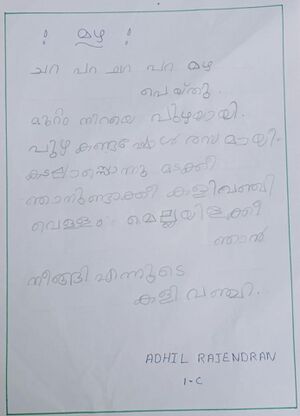 : മഴ :
ചറ പറ ചറ പറ മഴ
പെയ്തു .
മുറ്റം നിറയെ പുഴയായി.
പുഴ കണ്ടപ്പോൾ രസമായി.
കടലാസൊന്നു മടക്കി
ഞാനുണ്ടാക്കി കളിവഞ്ചി
വെള്ളം മെല്ലയിളക്കീ
ഞാൻ
നീങ്ങി എന്നുടെ
കളി വഞ്ചി.
ADHIL RAJENDRAN
1-C